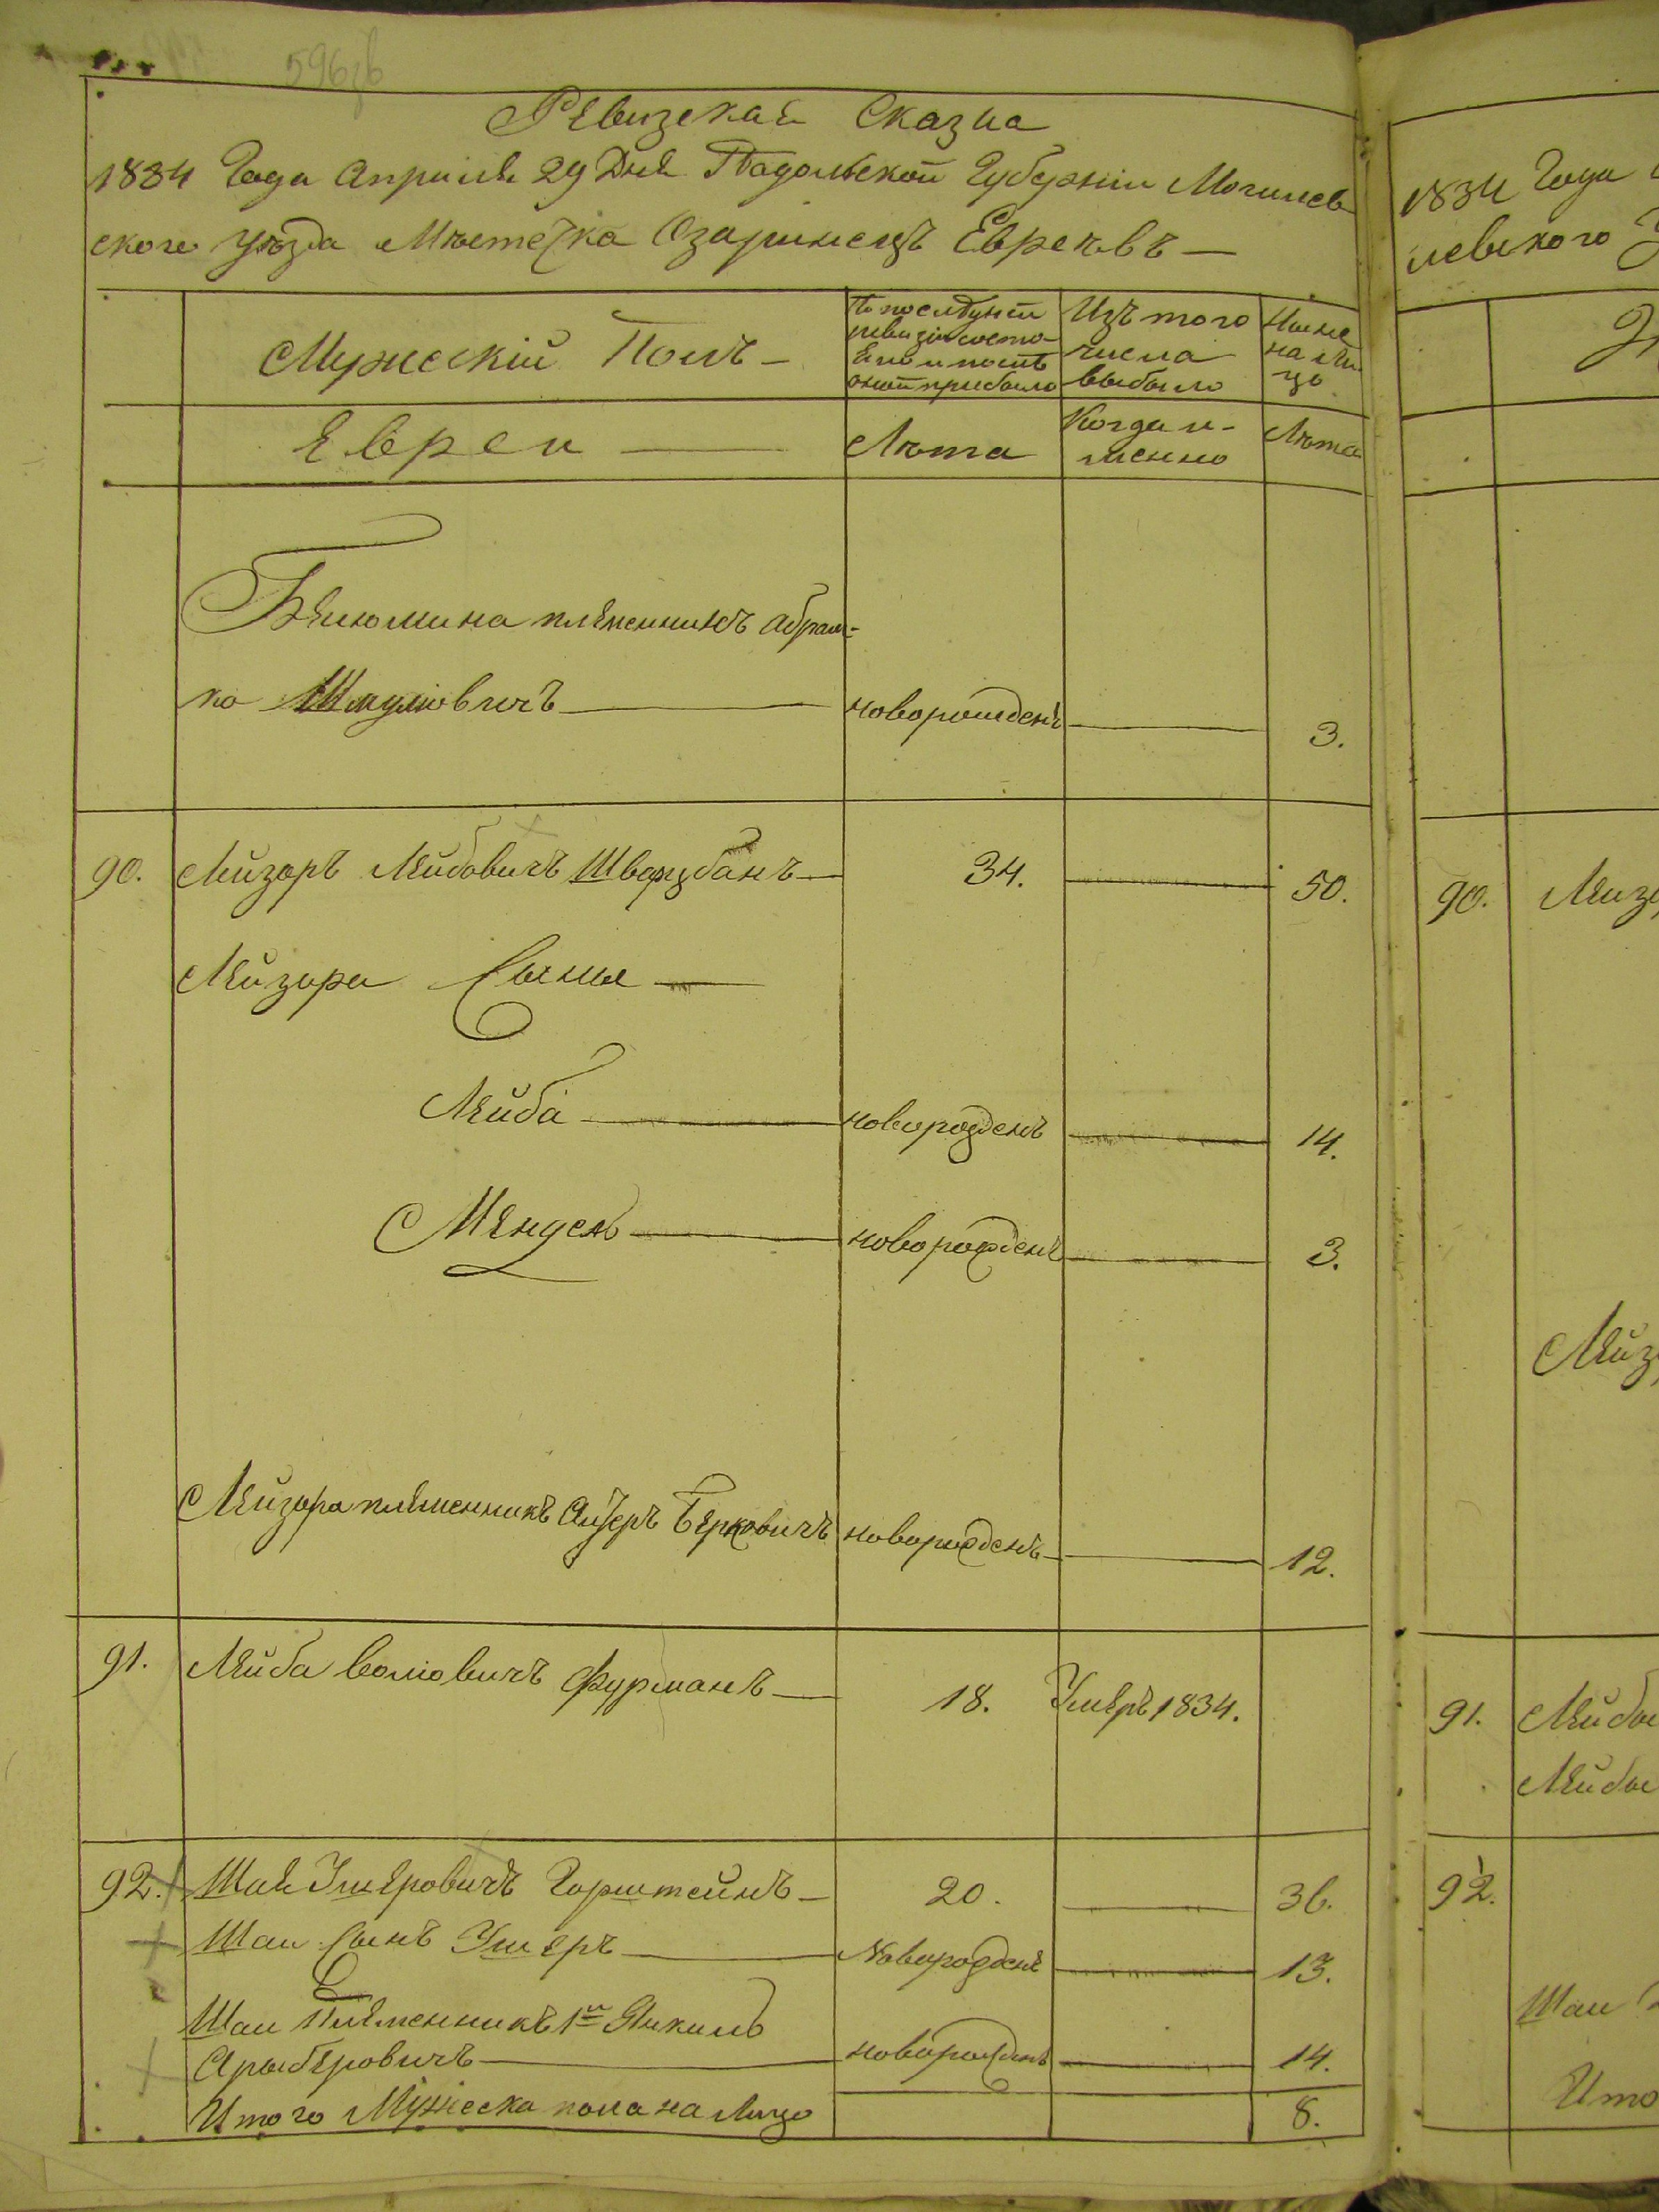 596зв
Ревизская Сказка
1834 Года Апреля 29 Дня Подольской Губернии Могилев
ского уѣзда Мѣстечка Озаринецъ Евреевъ —
Мужескій Полъ —
По последней
ревизіи состо-
яло и послѣ
оной прибыло
Изъ того
числа
выбыло
Ныне
на ли
цо
Евреи —
Лѣта
Когда и-
менно
Лѣта
Бениомина племенникъ Абрам-
ко Шмулiовичъ — новорожденъ — 3.
90. Лейзоръ Лейбовичъ Шварцбанъ — 34. — 50.
Лейзора Сынья —
Лейба — новорожденъ — 14.
Мендель — новорожденъ — 3.
Лейзора племенникъ Айзеръ Берковичъ новорожденъ — 12.
91. Лейба Волiовичъ Фурманъ — 18. Умеръ 1834.
92. Шая Ушеровичъ Горштейнъ — 20. — 36.
Шаи Сынъ Ушеръ — Новорожденъ — 13.
Шаи Племенникъ 1й Янкель
Арыберовичъ — новорожденъ — 14.
Итого Мужеска пола на лицо 8.
1834 Года
левского
90. Лейзо
Лейз
91. Лейбы
Лейбы
92.
Шаи
Ито